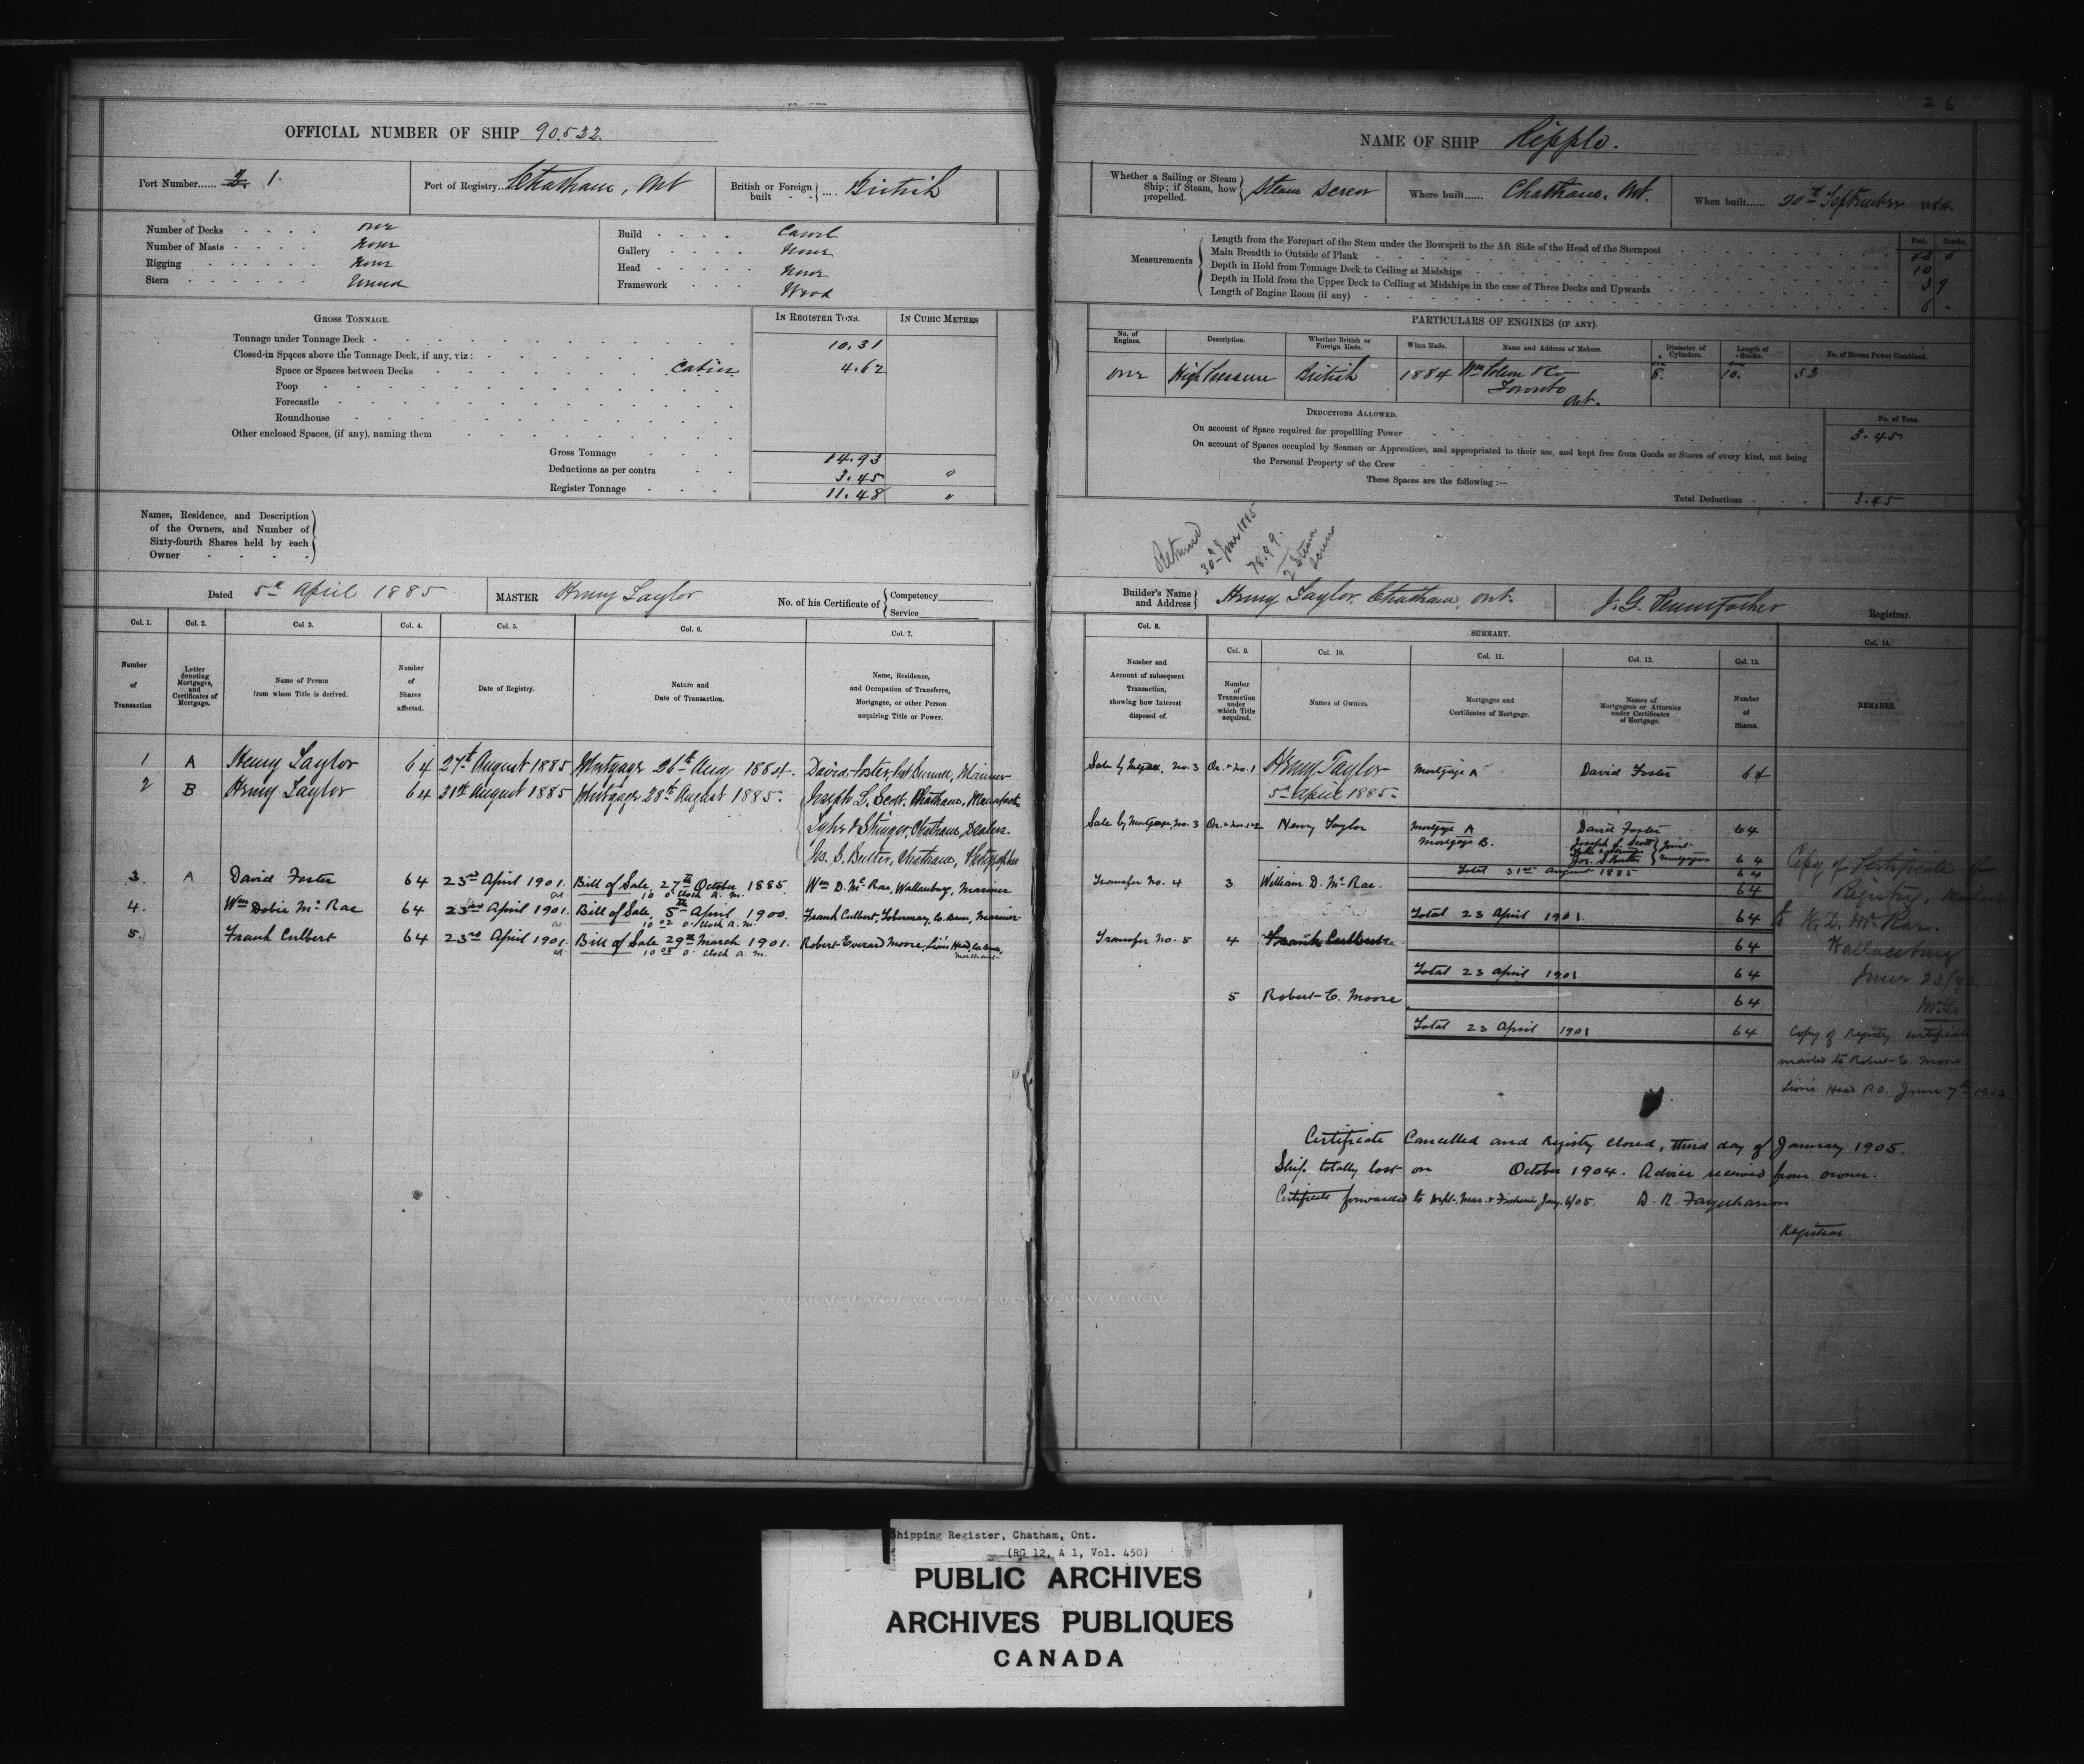 26
OFFICIAL NUMBER OF SHIP 90.522.
Port Number...... 2. 1.
Port of Registry.. Chatham, Ont
British or Foreign built .... British
Number of Decks one
Number of Masts None
Rigging None
Stern Round
Build Carvel
Gallery None
Head None
Framework Wood
GROSS TONNAGE.
IN REGISTER TONS.
IN CUBIC METRES
Tonnage under Tonnage Deck 10.31
Closed-in Spaces above the Tonnage Deck, if any, viz:
Space or Spaces between Decks Cabin 4.62
Poop
Forecastle
Roundhouse
Other enclosed Spaces, (if any), naming them
Gross Tonnage 14.93
Deductions as per contra 3.45 "
Register Tonnage 11.48 "
Names, Residence, and Description
of the Owners, and Number of
Sixty-fourth Shares held by each
Owner
Dated 5th April 1885
MASTER Henry Taylor
No. of his Certificate of Competency
Service
Col. 1. Col. 2. Col 3. Col. 4. Col. 5. Col. 6. Col. 7.
Number of Transaction
Letter denoting Mortgages, and Certificates of Mortgage.
Name of Person from whom Title is derived.
Number of Shares affected.
Date of Registry.
Nature and Date of Transaction.
Name, Residence, and Occupation of Transferee, Mortgagee, or other Person acquiring Title or Power.
1 A Henry Taylor 64 27th August 1885 Mortgage 26th Aug 1884. David Foster, Mariner
2 B Henry Taylor 64 31st August 1885 Mortgage 28th August 1885. Joseph L. Scott, Chatham,
Chatham, Dealers.
Jos. S. Butler, Chatham, Photographer
3. A David Foster 64 23rd April 1901. Bill of Sale, 27th October 1885. Wm D. McRae, Wallaceburg, Mariner
at 10 o'clock a.m.
4. Wm Dobie McRae 64 23rd April 1901. Bill of Sale, 5th April 1900. Frank Culbert, Tobermory, Co. Bruce, Mariner
at 10 02 o'clock a.m.
5. Frank Culbert 64 23rd April 1901. Bill of Sale 29th March 1901. Robert Everard Moore, Lion's Head, Co. Bruce,
at 10 05 o'clock a.m. Merchant
NAME OF SHIP Ripple.
Whether a Sailing or Steam Ship; if Steam, how propelled. Steam Screw
Where built...... Chatham, Ont.
When built...... 20th September 1884.
Measurements
Feet. Tenths.
Length from the Forepart of the Stem under the Bowsprit to the Aft Side of the Head of the Sternpost
Main Breadth to Outside of Plank 10
Depth in Hold from Tonnage Deck to Ceiling at Midships 3 9
Depth in Hold from the Upper Deck to Ceiling at Midships in the case of Three Decks and Upwards
Length of Engine Room (if any) 6 -
PARTICULARS OF ENGINES (IF ANY).
No. of Engines. Description. Whether British or Foreign Made. When Made. Name and Address of Makers. Diameter of Cylinders. Length of Stroke. No. of Horses Power Combined.
One High Pressure British 1884 Wm Polson & Co 8. 10. 33
Toronto
Ont.
DEDUCTIONS ALLOWED.
No. of Tons.
On account of Space required for propellling Power 3.45
On account of Spaces occupied by Seamen or Apprentices, and appropriated to their use, and kept free from Goods or Stores of every kind, not being
the Personal Property of the Crew
These Spaces are the following :—
Total Deductions 3.45
Returned
1885
Steam
Screw
Builder's Name and Address Henry Taylor, Chatham, Ont.
J. G. Pennefather
Registrar.
Col. 8. SUMMARY. Col. 14.
Col. 9. Col. 10. Col. 11. Col. 12. Col. 13.
Number and Account of subsequent Transaction, showing how Interest disposed of.
Number of Transaction under which Title acquired.
Names of Owners.
Mortgages and Certificates of Mortgage.
Names of Mortgagees or Attornies under Certificates of Mortgage.
Number of Shares.
REMARKS.
Sale by Mortgagee, No. 3 Or. & No. 1 Henry Taylor Mortgage A David Foster 64
5th April 1885.
Sale by Mortgagee, No. 3 Or. & Nos. 1 & 2 Henry Taylor Mortgage A David Foster 64
Mortgage B. Joseph L. Scott Joint
Jos. S Butler Mortgagees 64
Total 31st August 1885 64
Transfer No. 4 3 William D. McRae. 64
Total 23 April 1901. 64
Transfer No. 5 4 Frank Culbert. 64
Total 23 April 1901 64
5 Robert E. Moore 64
Total 23 April 1901 64
Copy of Certificate of
Registry, Mailed
to W. D. McRae.
Wallaceburg
Copy of Registry certificate
mailed to Robert E. Moore
Lion's Head P.O. June 7th 1902
Certificate Cancelled and Registry closed, third day of January 1905.
Ship totally lost on October 1904. Advice received from owner.
Certificate forwarded to Dept. Mar. & Fisheries Jany. 6/05. D. R. Farquharson
Registrar.
Shipping Register, Chatham, Ont.
(RG 12, A 1, Vol. 450)
PUBLIC ARCHIVES
ARCHIVES PUBLIQUES
CANADA